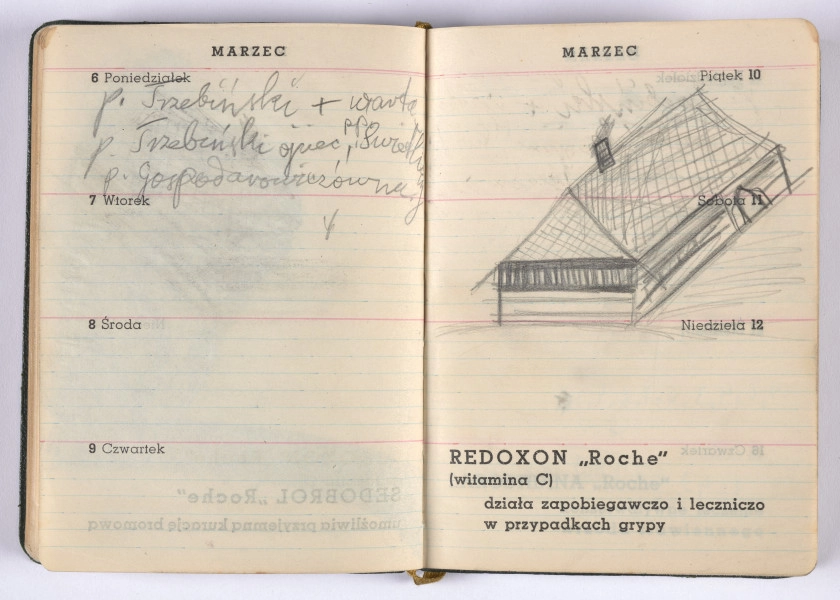 MARZEC
6 Poniedziałek
p. Trzebiński + warta
p. Trzebiński ojciec,
p. Gospodarowiczówna
7 Wtorek
8 Środa
9 Czwartek
MARZEC
Piątek 10
Sobota 11
Niedziela 12
REDOXON „Roche”
(witamina C)
działa zapobiegawczo i leczniczo
w przypadkach grypy